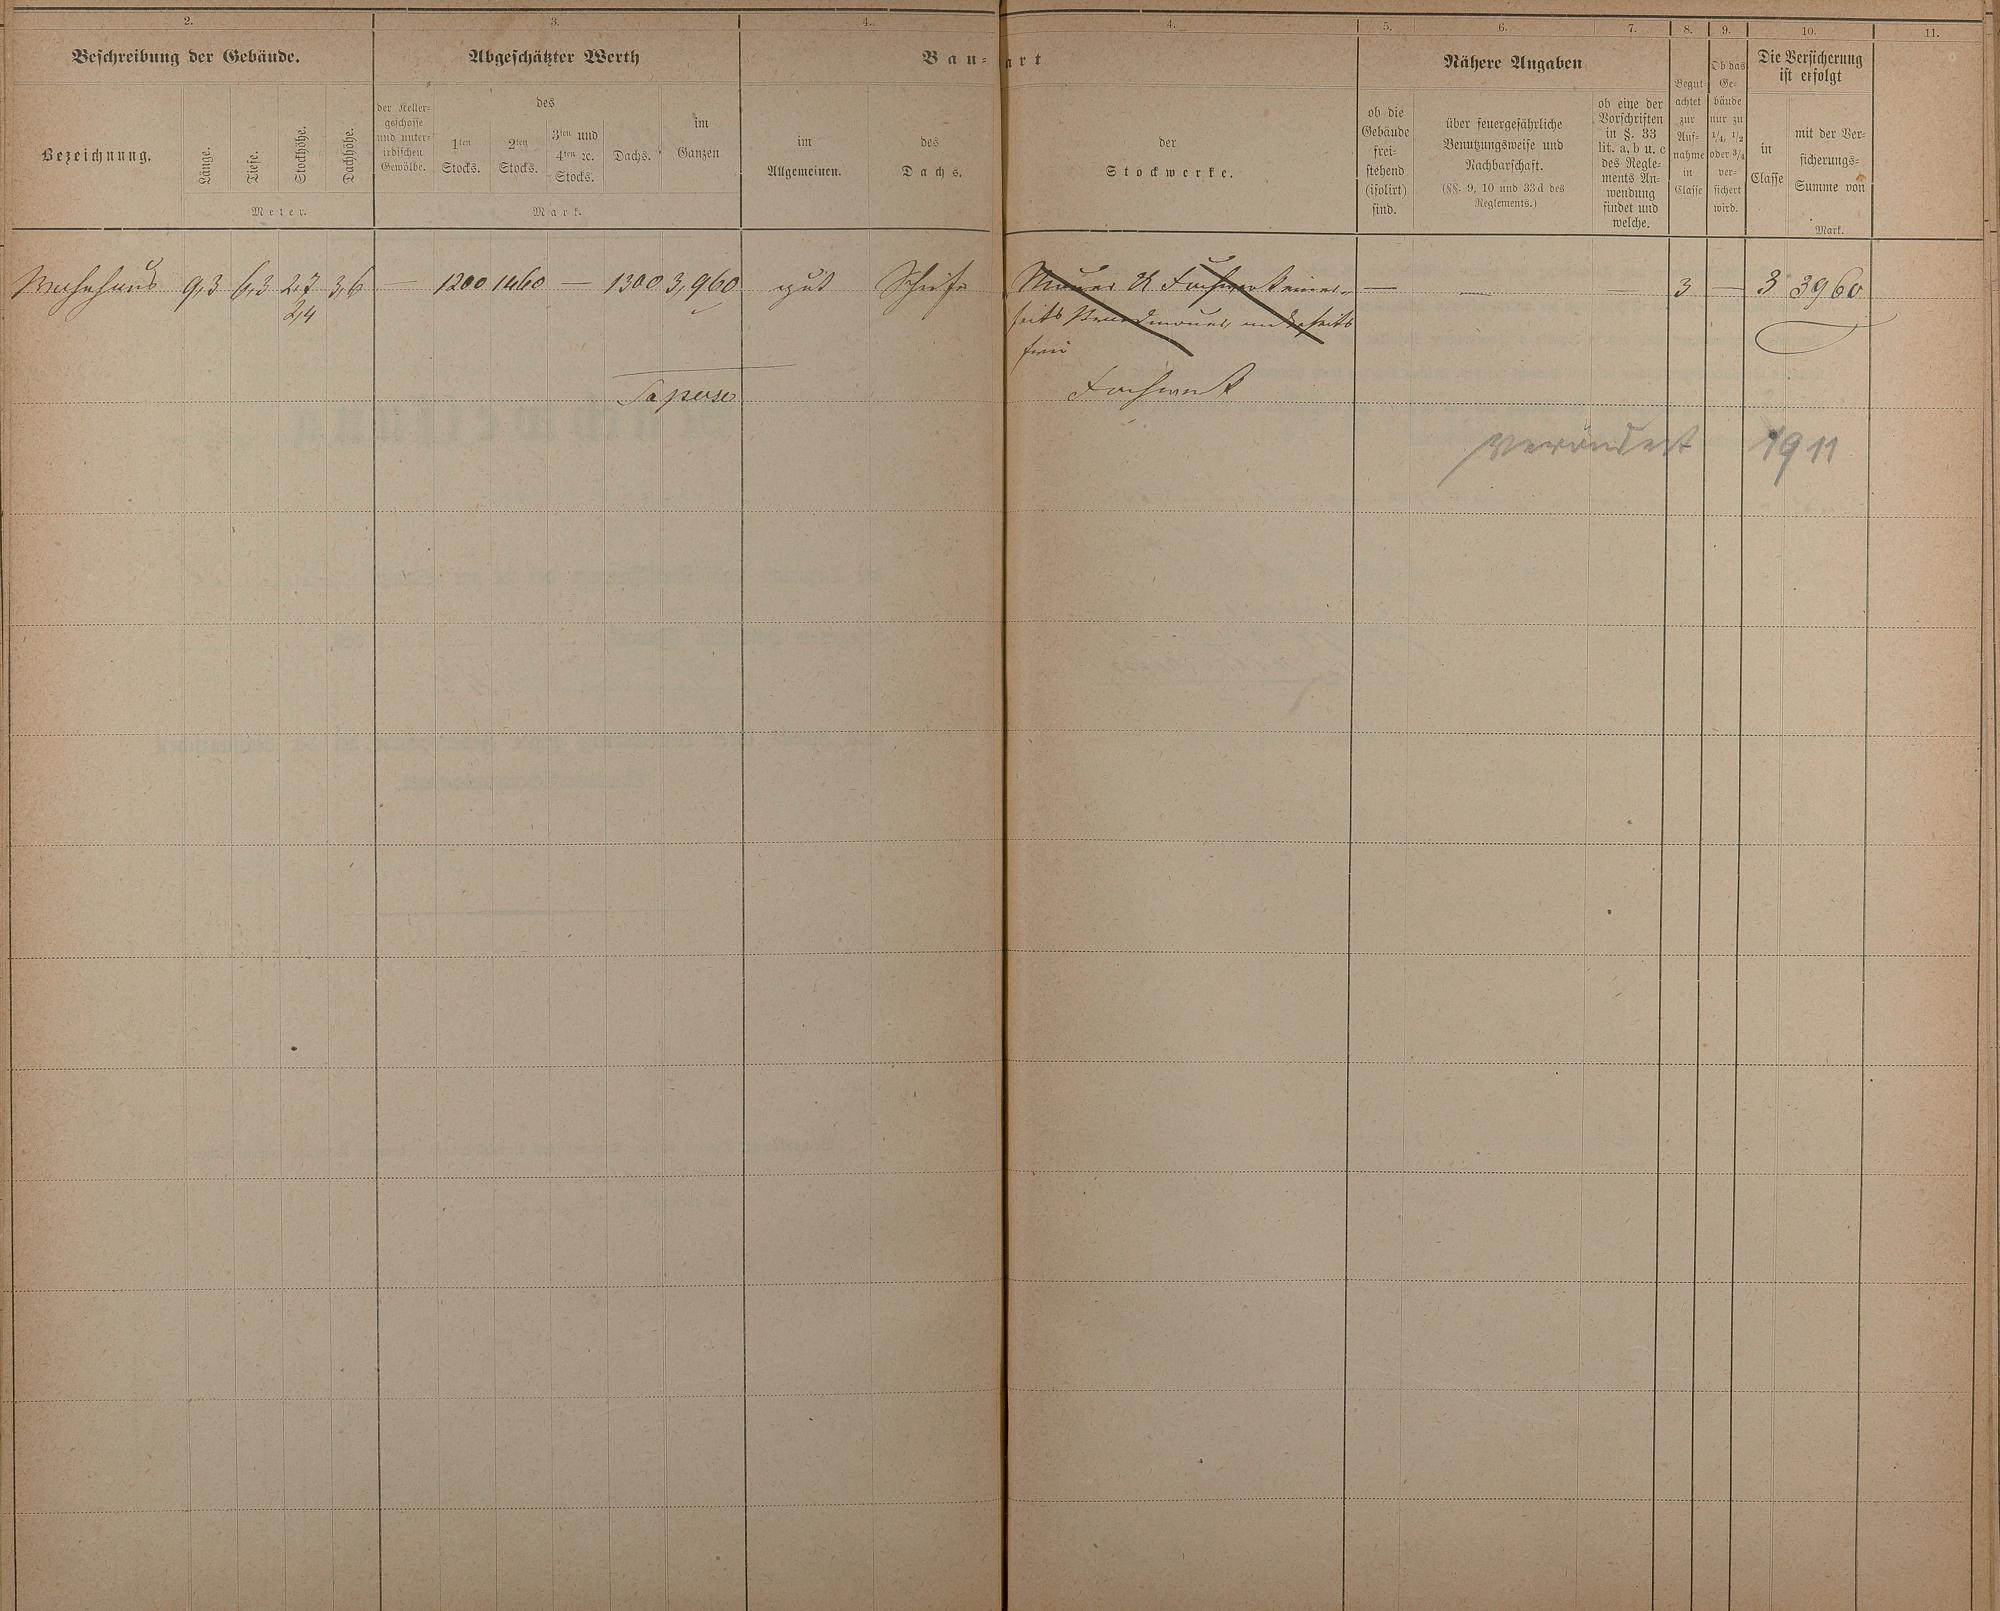 2.
3.
4.
4.
5.
6.
7.
8.
9.
10.
11.
Beschreibung der Gebäude.
Abgeschätzter Werth
Bau-
art
Nähere Angaben
Die Versicherung
ist erfolgt
Bezeichnung.
Länge.
Tiefe.
Stockhöhe.
Dachhöhe.
Meter.
der Keller-
geschosse
und unter-
irdischen
Gewölbe.
des
1ten
Stocks.
2ten
Stocks.
3ten und
4ten ꝛc.
Stocks.
Dachs.
im
Ganzen
Mark.
im
Allgemeinen.
des
Dachs.
der
Stockwerke.
ob die
Gebäude
frei-
stehend
(isolirt)
sind.
über feuergefährliche
Benutzungsweise und
Nachbarschaft.
(§§. 9, 10 und 33 d des
Reglements.)
ob eine der
Vorschriften
in §. 33
lit. a, b u. c
des Regle-
ments An-
wendung
findet und
welche.
Begut-
achtet
zur
Auf-
nahme
in
Classe
Ob das
Ge-
bäude
nur zu
1/4, 1/2
oder 3/4
ver-
sichert
wird.
in
Classe
mit der Ver-
sicherungs-
Summe von
Mark.
Wohnhaus 9,3 6,3 2,7 3,6 — 1200 1460 — 1300 3,960 gut Schiefer Mauer & Fachwerk einer- — — — 3 — 3 3960
2,4
seits Brandmauer, anderseits
frei
Taperse
Fachwerk
Verändert 1911